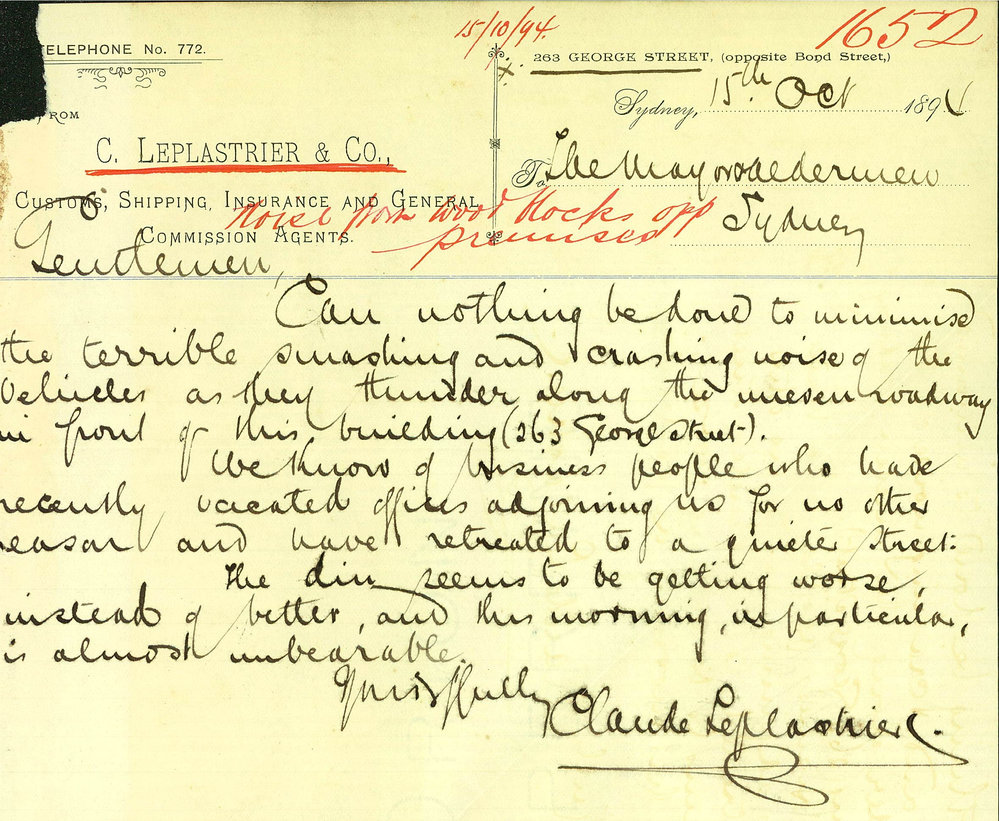 TELEPHONE No. 772.
15/10/94.
1652
263 GEORGE STREET, (opposite Bond Street,)
Sydney, 15th Oct 1894
FROM
C. LEPLASTRIER & CO.,
CUSTOMS, SHIPPING, INSURANCE AND GENERAL
COMMISSION AGENTS.
To The Mayor & aldermen
Sydney
Noise from wood blocks opp
premises
Gentlemen,
Can nothing be done to minimise
the terrible smashing and crashing noise of the
Vehicles as they thunder along the uneven roadway
in front of this building (263 George Street).
We know of business people who have
recently vacated offices adjoining us for no other
reason and have retreated to a quieter street.
The din seems to be getting worse,
instead of better, and this morning, in particular,
is almost unbearable.
Yours ffully
Claude Leplastrier.